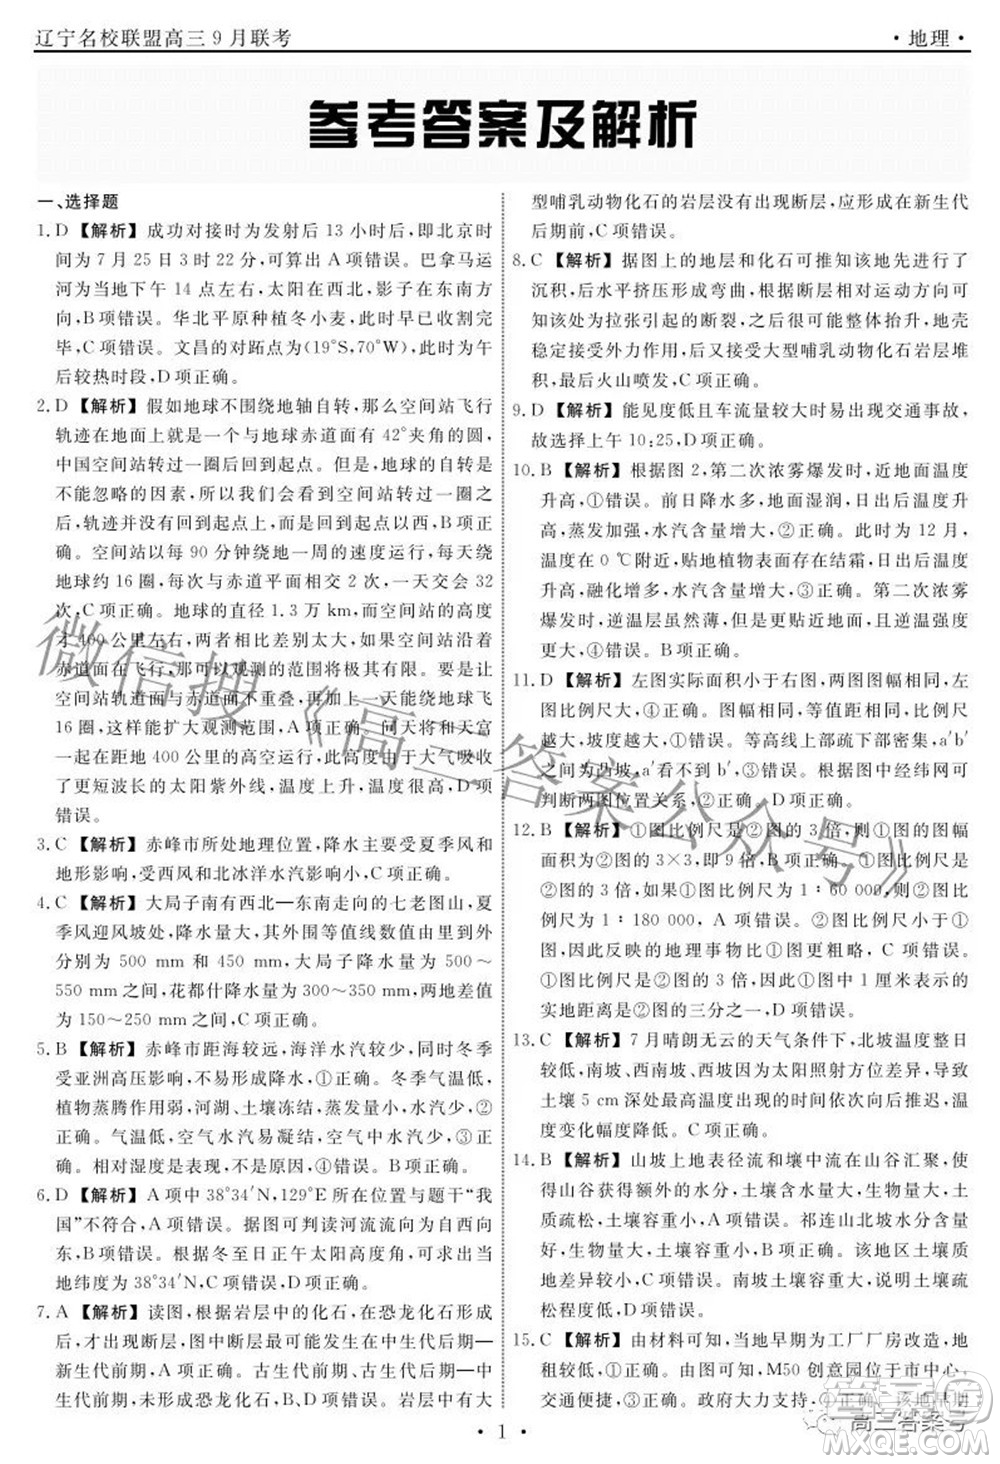 辽宁名校联盟高三9月联考
·地理·
参考答案及解析
一、选择题
1. D 【解析】成功对接时为发射后 13 小时后,即北京时
间为 7 月 25 日 3 时 22 分,可算出 A 项错误。巴拿马运
河为当地下午 14 点左右,太阳在西北,影子在东南方
向,B 项错误。华北平原种植冬小麦,此时已收割完
毕,C 项错误。文昌的对跖点为(19°S,70°W),此时为午
后较热时段,D 项正确。
2. D 【解析】假如地球不围绕地轴自转,那么空间站飞行
轨迹在地面上就是一个与地球赤道面有 42°夹角的圆,
中国空间站环绕一圈会回到起点。但是,地球的自转是
不能忽略的因素,所以我们会看到空间站环绕一圈以
后,轨迹并没有回到起点,而是落在了起点以西,B 项正
确。空间站以每 90 分钟绕地一周的速度运行,一天绕
地球约 16 圈,每次与赤道平面相交两次,一天交会 32
次,C 项正确。地球的直径 1.3 万 km,而空间站的高度
才 400 公里左右,两者相比差别太大,如果空间站沿着
赤道面飞行,那可以观测的范围将极其有限。要是让
空间站轨道与赤道面不重叠,再加上一天能绕地球飞
16 圈,这样就能扩大观测范围,A 项正确。问天将和天宫
一起在距地 400 公里的高空运行,此高度由于大气吸收
了更短波长的太阳紫外线,天空应该更黑暗些,D 项
错误。
3. C 【解析】赤峰市所处地理位置,降水主要受夏季风和
地形影响,受西风和北冰洋水汽影响小,C 项正确。
4. C 【解析】大局子南有西北—东南走向的七老图山,夏
季风迎风坡处,降水量大,其外围有等值线数值由外向内
分别为 500 mm 和 450 mm,大局子降水量为 500~
550 mm 之间,花都什降水量为 300~350 mm,两地差值
为 150~250 mm 之间,C 项正确。
5. B 【解析】赤峰市距海较远,海洋水汽较少,同时冬季
受亚洲高压影响,不易形成降水,①正确。冬季气温低,
植物蒸腾作用弱,河湖、土壤冻结,蒸发量小,水汽少,②
正确。气温低,空气水汽易凝结,空气中水汽少,④正
确。相对湿度是表现,不是原因,③错误。B 项正确。
6. D 【解析】A 项中 38°34′N,129°E 所在位置与题干“我
国”不符合,A 项错误。据图可判读河流流向为自西向
东,B 项错误。根据冬至日正午太阳高度角,可以推出
当地纬度为 38°34′N,C 项错误,D 项正确。
7. A 【解析】读图,根据岩层中的化石,在恐龙化石形成
后,才出现断层,图中断层最可能发生在中生代后期—
新生代前期,A 项正确。古生代前期、古生代后期—中
生代前期,未形成恐龙化石,B、D 项错误。岩层中有大
型哺乳动物化石的岩层没有出现断层,应形成在新生代
后期前,C 项错误。
8. C 【解析】据图上的地层和化石可推知该地先进行了
沉积,后水平挤压形成弯曲,根据断层两侧移动方向可
知该处为拉张引起的断裂,之后有过整体抬升,地壳
稳定接受外力作用,后出现接受大型哺乳动物化石岩层堆
积,最后火山喷发,C 项正确。
9. D 【解析】能见度低且车流量较大时易出现交通事故,
故选择上午 10:25,D 项正确。
10. B 【解析】根据图 2,第二次浓雾爆发时,近地面温度
升高,①错误。前日降水多,地面湿润,日出后温度升
高,蒸发加强,水汽含量增大,②正确。此时为 12 月,
温度在 0 ℃附近,贴地植物表面存在结霜,日出后温度
升高,融化增多,水汽含量增大,③正确。第二次浓雾
爆发时,逆温层虽然薄,但更贴近地面,且逆温强度更
大,④错误。B 项正确。
11. D 【解析】左图实际面积小于右图,两图图幅相同,左
图比例尺大,①正确。图幅相同,等值距相同,左图范
围大,坡度越大,③错误。等高线上疏下部密集,a′b′
之间为凸坡,a′看不到 b′,④正确。根据图中经纬网可
判断两图位置关系,②正确。D 项正确。
12. B 【解析】①图比例尺是②图的 3 倍,则①图的图幅
面积为②图的 3×3,即 9 倍,B 项正确。①图比例尺为
②图的 3 倍,如果①图比例尺为 1∶60 000,则②图比
例尺为 1∶180 000,A 项错误。②图比例尺小于①
图,因此反映的地理事物比①图更粗略,C 项错误。①
图比例尺是②图的 3 倍,①图中 1 厘米表示的
实地距离应为②图的三分之一,D 项错误。
13. C 【解析】7 月晴朗无云的天气条件下,北坡应为阴
坡,南坡、西南坡、西坡因为太阳照射角度及时间差异,
土壤 5 cm 深处最高温度出现的时间依次后推迟,温
度变化幅度降低。C 项正确。
14. B 【解析】山坡上地表径流和壤中流在山谷汇聚,所
以山谷可以获得额外的水分,土壤含水量大,土壤有机
质疏松,生物量大,土壤容重小。祁连山北坡水分含量
高,生物量大,土壤容重小,C 项错误。该地区土壤质
地差异不显著,D 项错误。南坡土壤容重大,说明土壤疏
松程度低,B 项正确。
15. C 【解析】由材料可知,当地早期为工厂厂房改造,地
租较低,①正确。由图可知,M50 创意园位于市中心,
交通便捷,③正确。政府大力支持,④正确。该地早期
·1·
微信搜《高三答案公众号》
高三答案号
答案圈
MXQE.COM